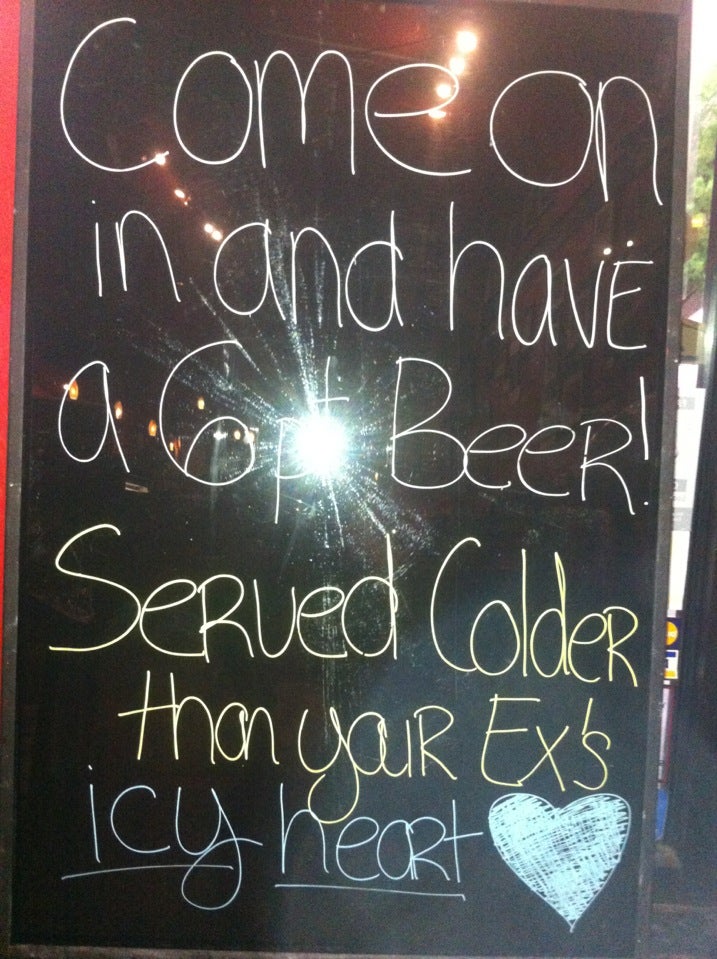 Come on
in and have
a 6pt Beer!
Served Colder
than your Ex's
icy heart